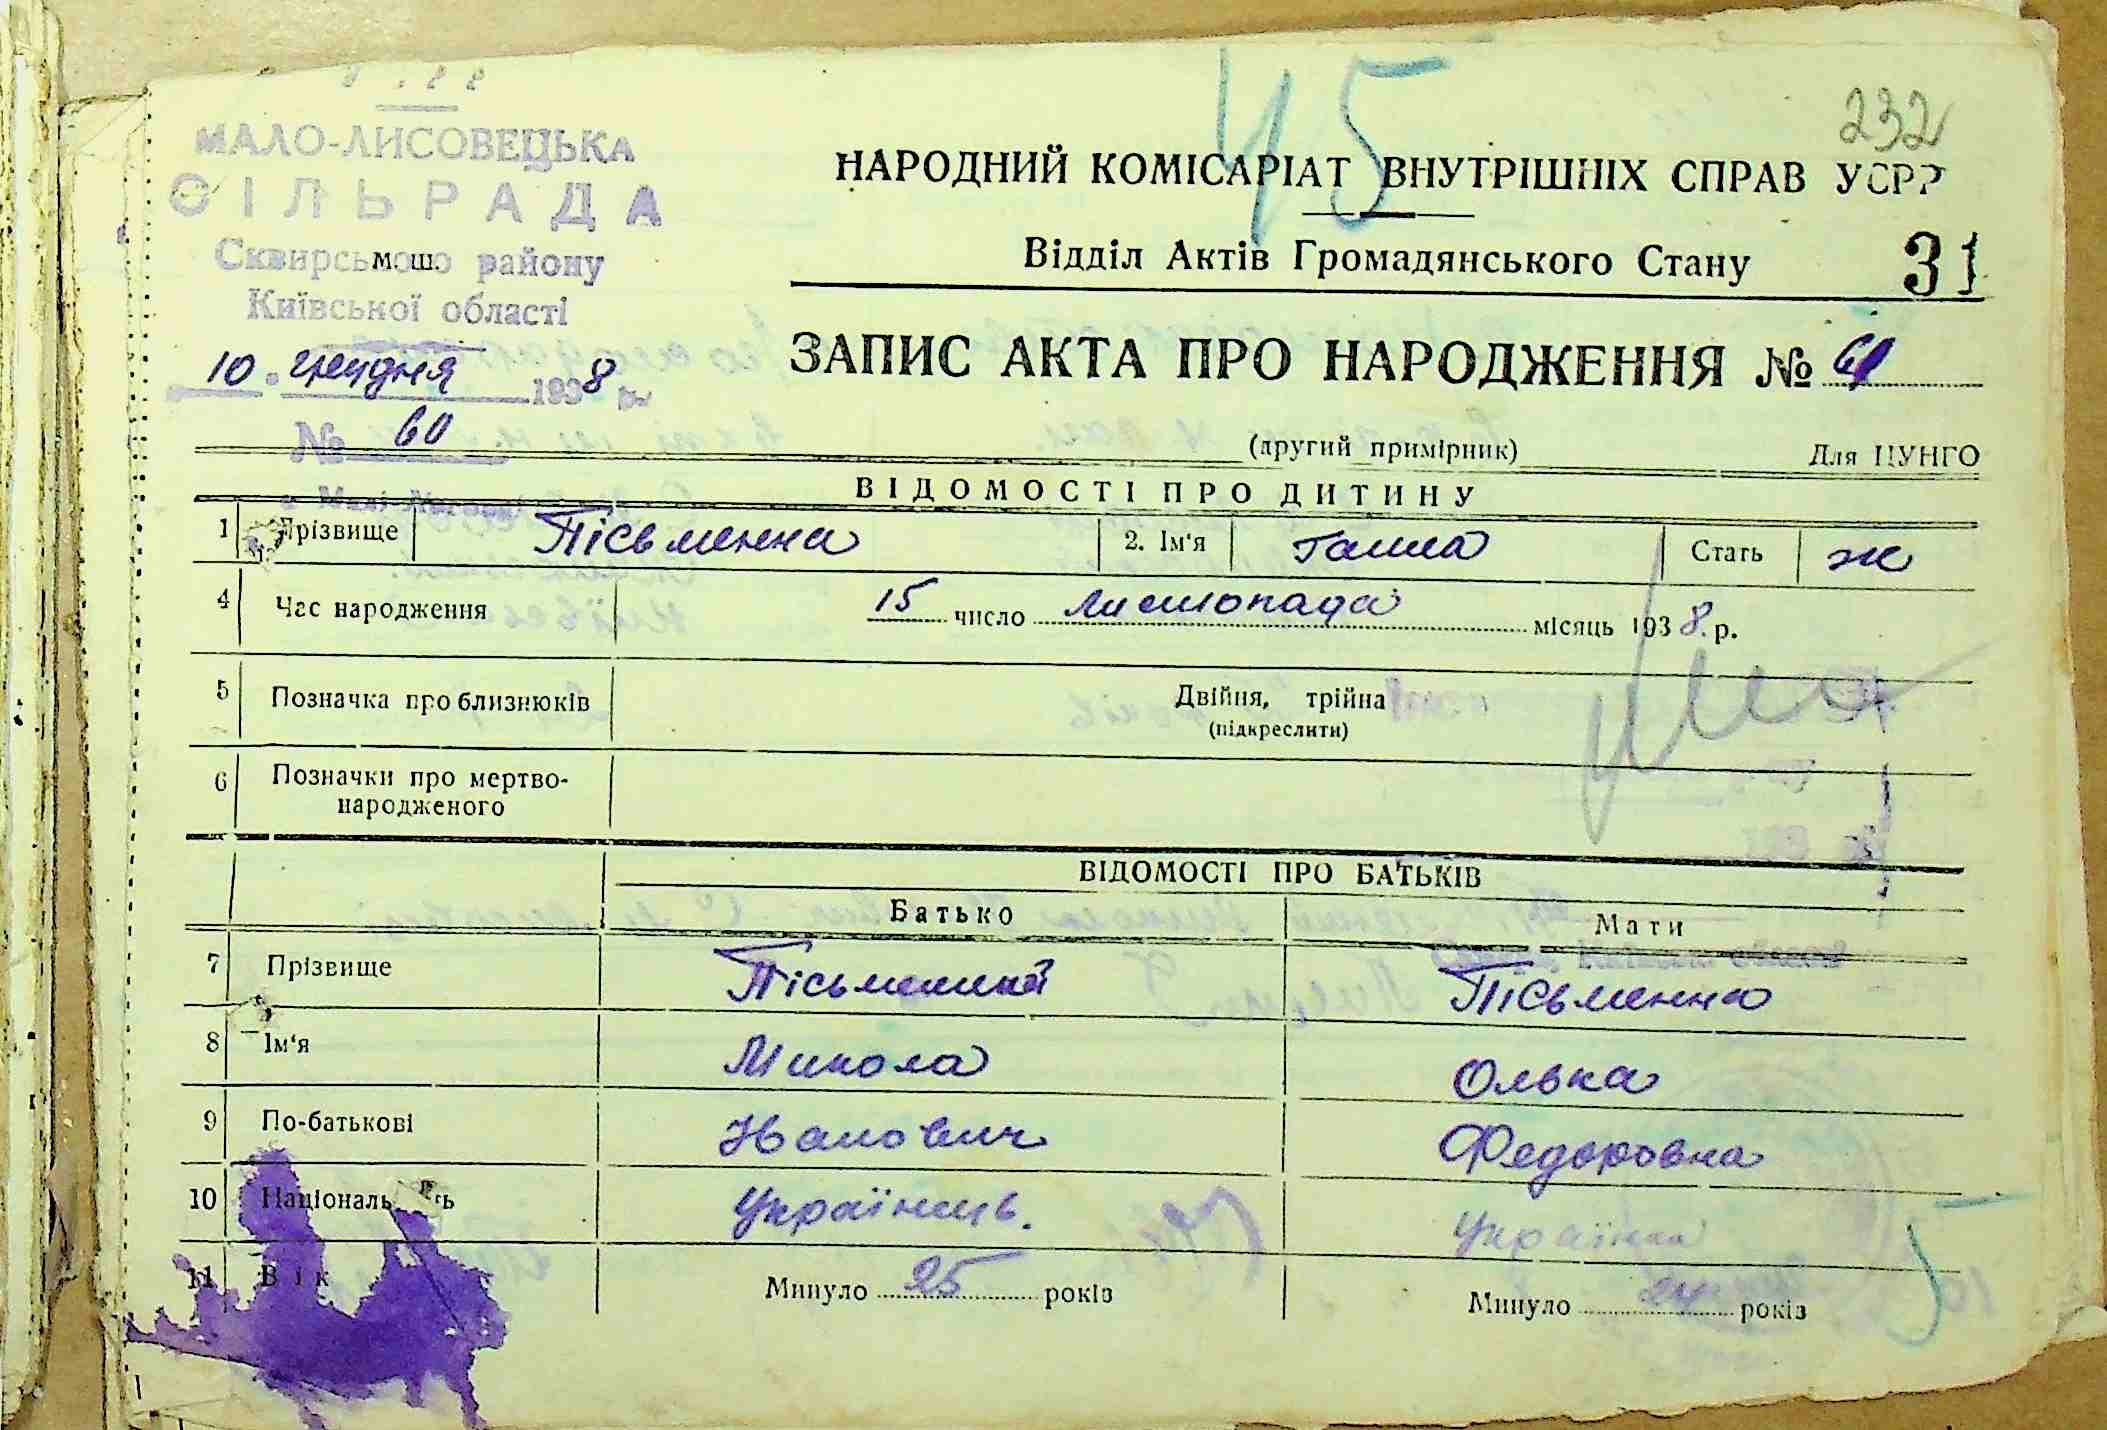 45
232
МАЛО-ЛИСОВЕЦЬКА
СІЛЬРАДА
Сквирського району
Київської області
10 грудня 1938 р.
№ 60
НАРОДНИЙ КОМІСАРІАТ ВНУТРІШНІХ СПРАВ УСРР
Відділ Актів Громадянського Стану
31
ЗАПИС АКТА ПРО НАРОДЖЕННЯ №
(другий примірник)
Для ЦУНГО
ВІДОМОСТІ ПРО ДИТИНУ
1 Прізвище Пісьменна 2. Ім'я Ганна Стать ж
4 Час народження 15 число листопада місяць 1938.р.
5 Позначка про близнюків Двійня, трійня
(підкреслити)
6 Позначки про мертво-
народженого
ВІДОМОСТІ ПРО БАТЬКІВ
Батько Мати
7 Прізвище Пісьменний Пісьменна
8 Ім'я Микола Олька
9 По-батькові Іванович Федоровна
10 Національ сть Українець. Українка
11 Вік Минуло 25 років Минуло 24 років